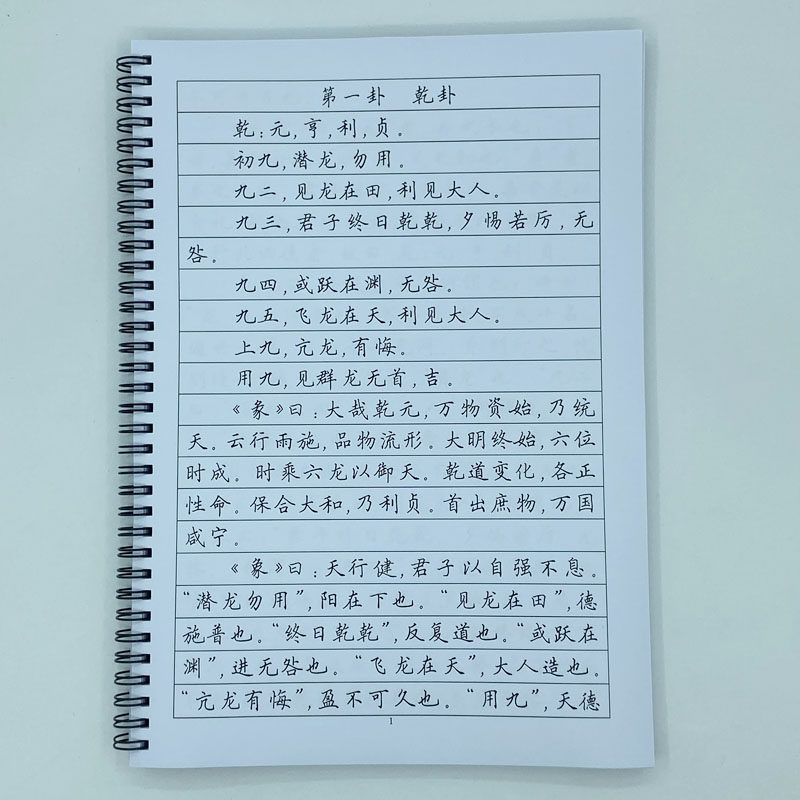 第一卦 乾卦
乾：元，亨，利，贞。
初九，潜龙，勿用。
九二，见龙在田，利见大人。
九三，君子终日乾乾，夕惕若厉，无
咎。
九四，或跃在渊，无咎。
九五，飞龙在天，利见大人。
上九，亢龙，有悔。
用九，见群龙无首，吉。
《彖》曰：大哉乾元，万物资始，乃统
天。云行雨施，品物流形。大明终始，六位
时成。时乘六龙以御天。乾道变化，各正
性命。保合大和，乃利贞。首出庶物，万国
咸宁。
《象》曰：天行健，君子以自强不息。
“潜龙勿用”，阳在下也。“见龙在田”，德
施普也。“终日乾乾”，反复道也。“或跃在
渊”，进无咎也。“飞龙在天”，大人造也。
“亢龙有悔”，盈不可久也。“用九”，天德
1